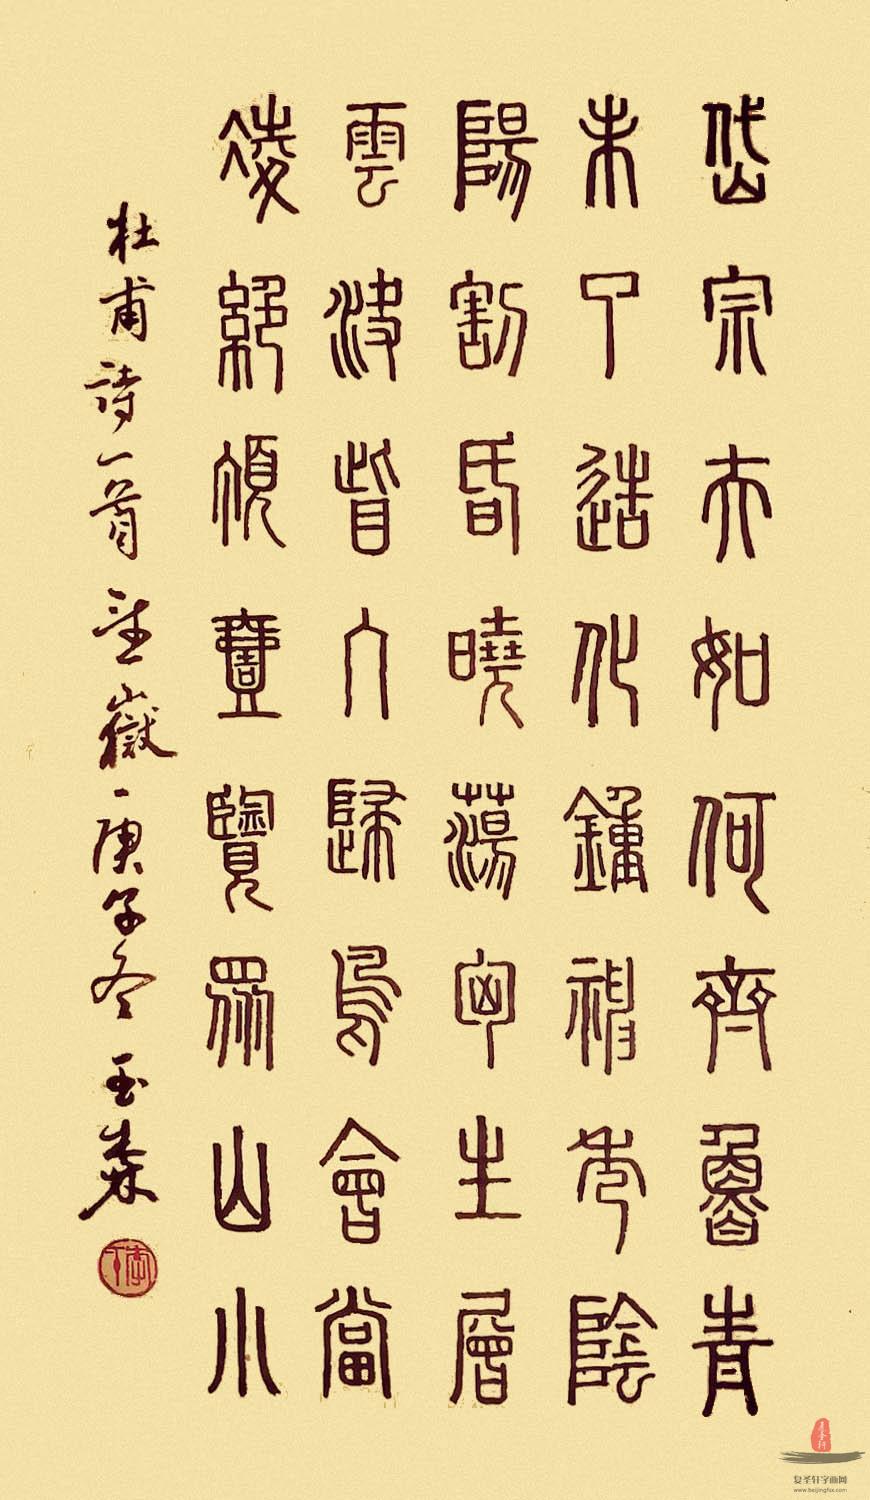 岱宗夫如何齊魯青
未了造化鍾神秀陰
陽割昏曉蕩胷生層
雲決眥入歸鳥會當
凌絕頂壹覽眾山小
杜甫詩一首望嶽庚子冬玉森
复圣轩字画网
www.beijingfsx.com